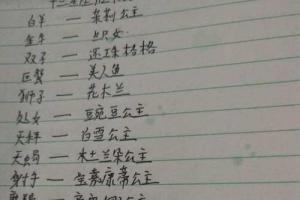 白羊 — 茉莉公主
金牛 — 织女
双子 — 还珠格格
巨蟹 — 美人鱼
狮子 — 花木兰
处女 — 豌豆公主
天秤 — 白雪公主
天蝎 — 木士兰朵公主
射手 — 宝嘉康蒂公主